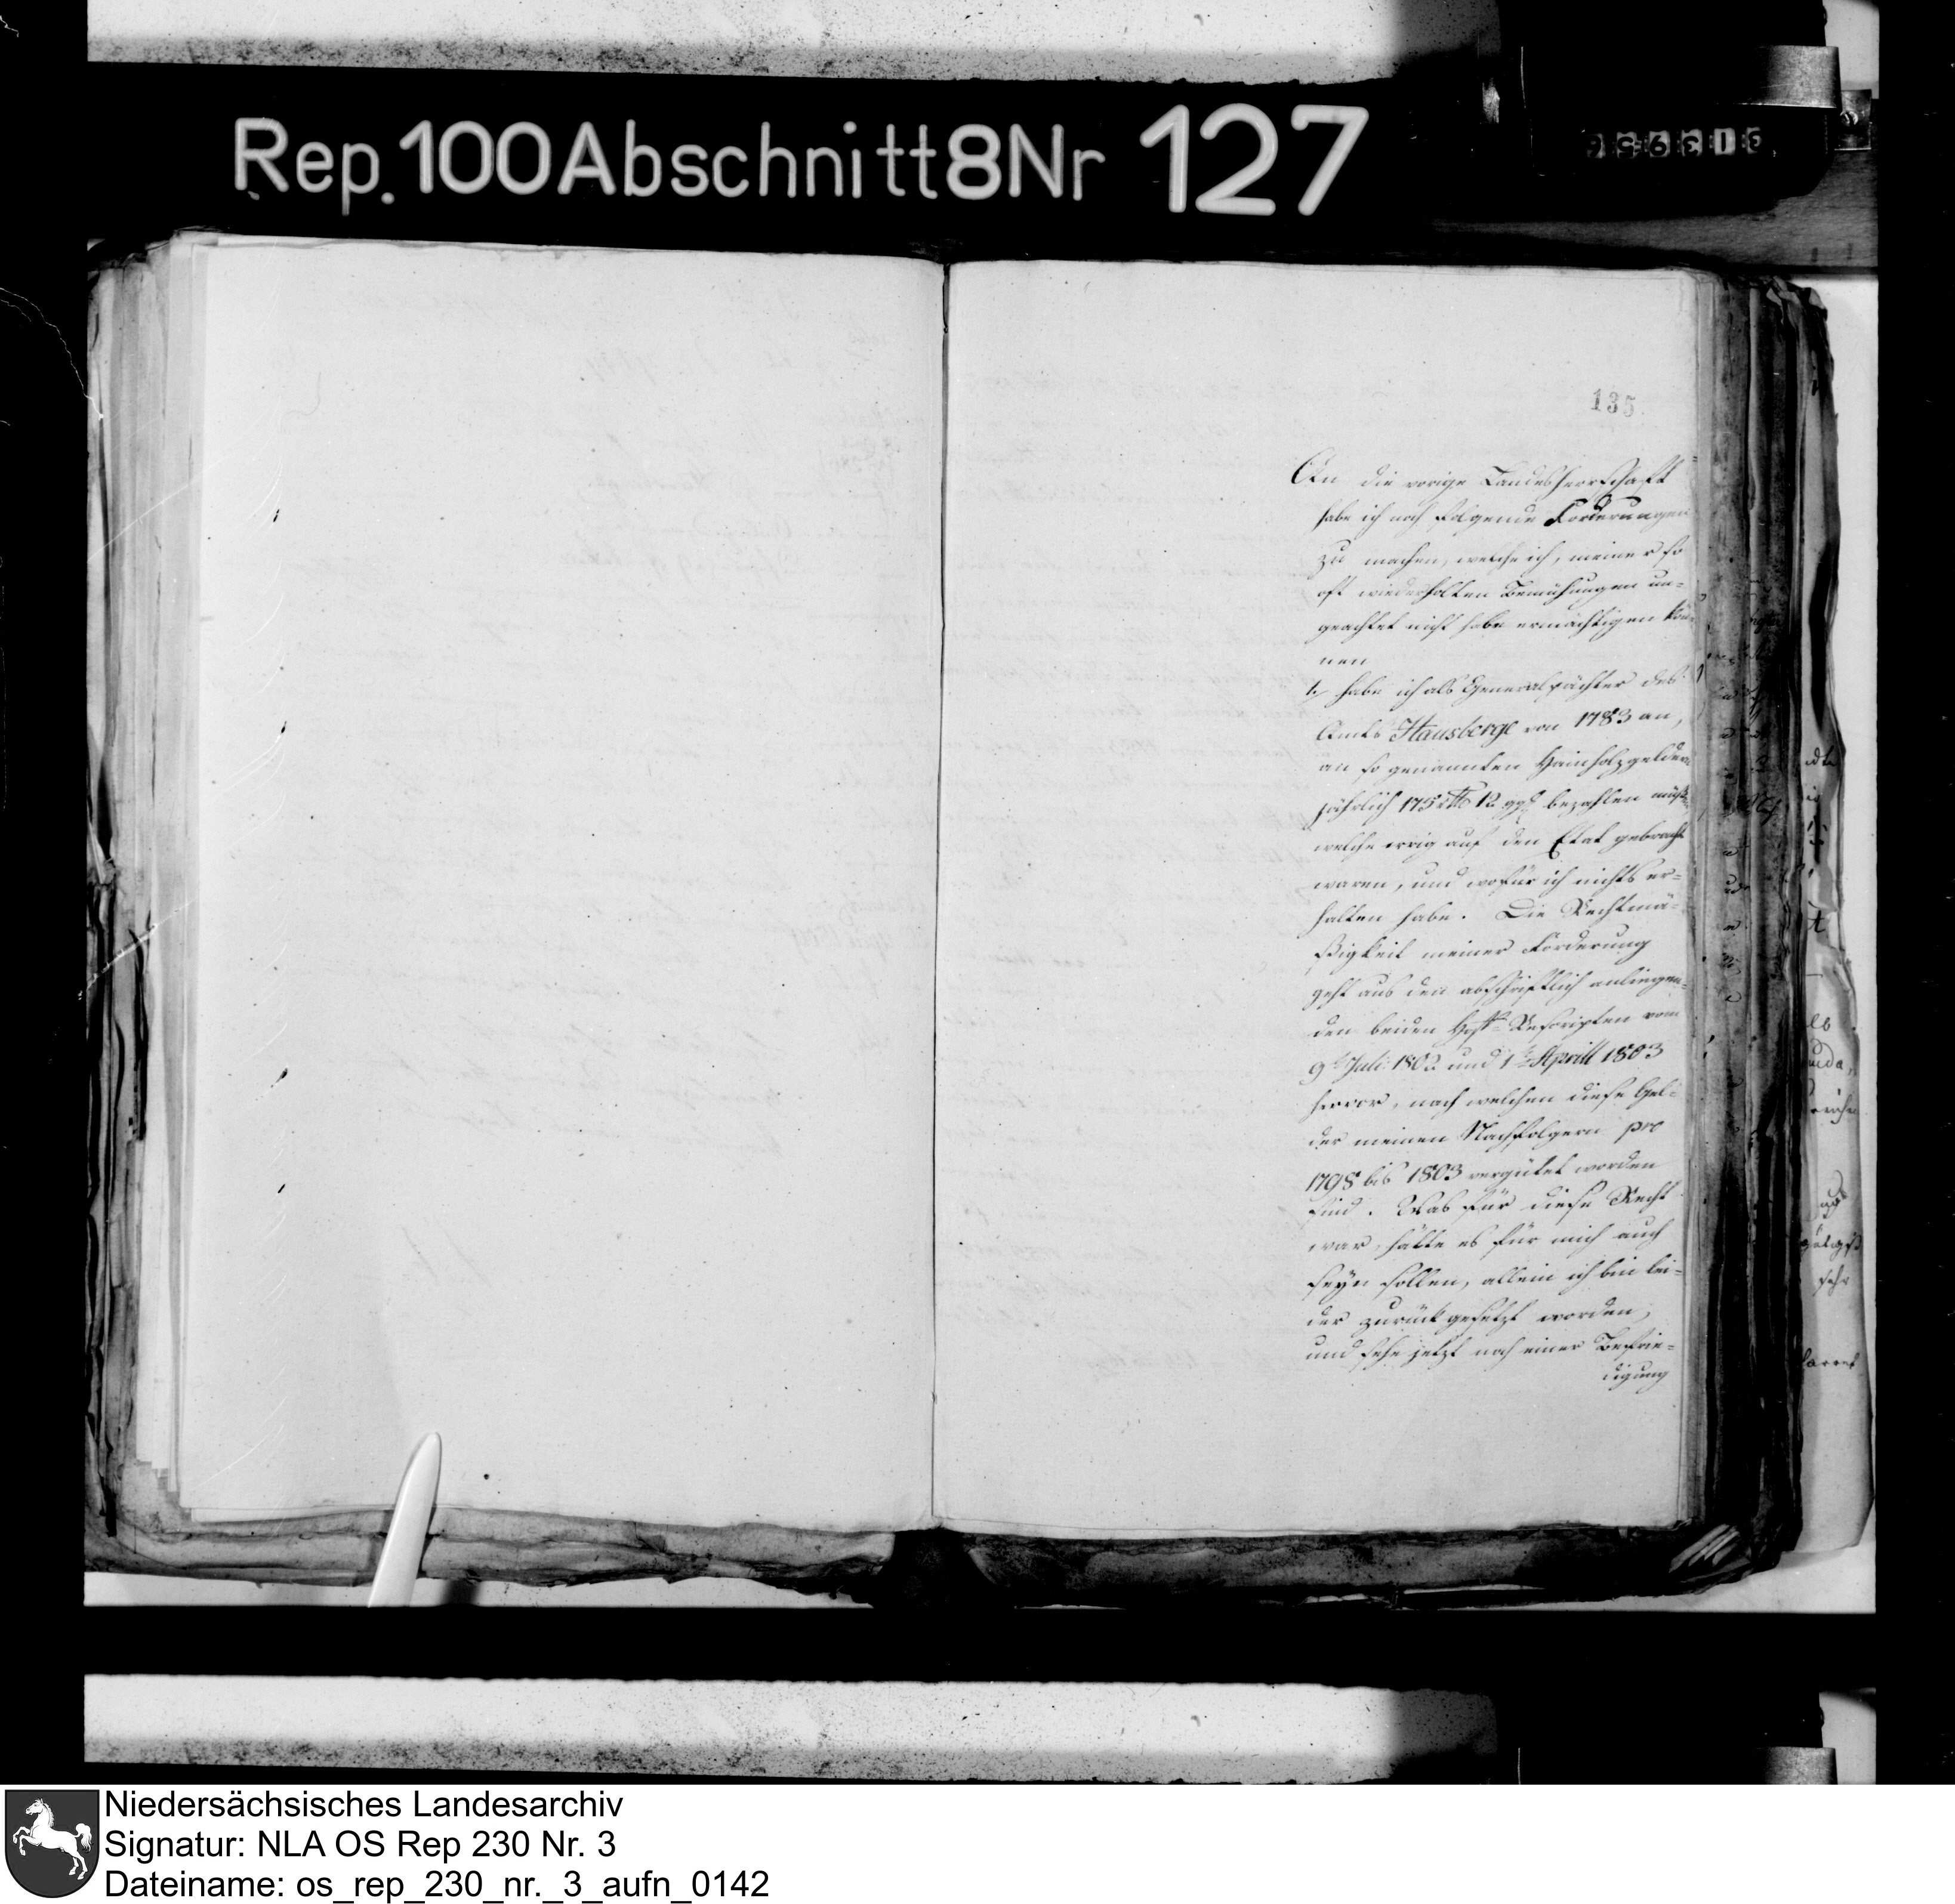 Rep. 100 Abschnitt 8 Nr 127
135.
An die vorige Landesherrschaft
habe ich noch folgende Forderungen
zu machen, welche ich, meiner so
oft wiederholten Bemühungen un-
geachtet nicht habe ermächtigen kön-
nen
1., habe ich als Generalpächter des
Amts Hausberge von 1783 an,
an so genannten Hainholzgeldern
jährlich 175 rtl 12 ggl bezahlen müß
welche irrig auf den Etat gebracht
waren, und wofür ich nichts er-
halten habe. Die Rechtmä-
ßigkeit meiner Forderung
geht aus den abschriftlich anliegen-
den beiden Rescripten vom
9t Juli 1802 und 1t Aprill 1803
hervor, nach welchen diese Gel-
der meinen Nachfolgern pro
1798 bis 1803 vergütet worden
sind. Was für diese Recht
war, hätte es für mich auch
seyn sollen, allein ich bin lei-
der zurückgesetzt worden,
und sehe jetzt noch einer Befrie-
digung
Niedersächsisches Landesarchiv
Signatur: NLA OS Rep 230 Nr. 3
Dateiname: os_rep_230_nr._3_aufn_0142